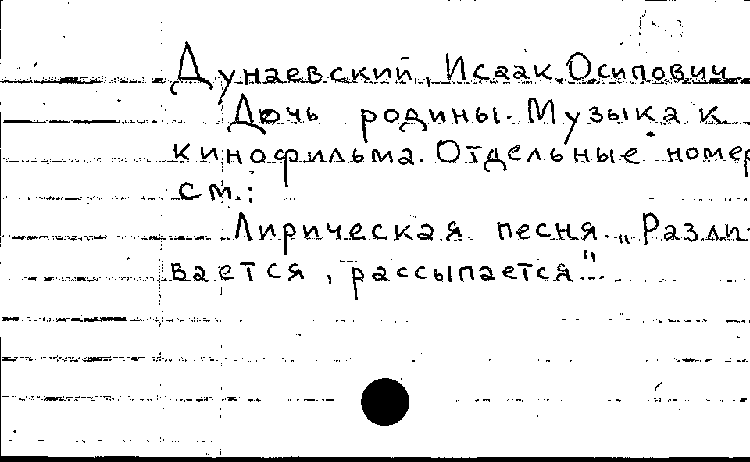 Дунаевский, Исаак Осипович
Дочь родины. Музыка к
кинофильма. Отдельные номер
см.:
Лирическая песня „Разли-
вается, рассыпается".